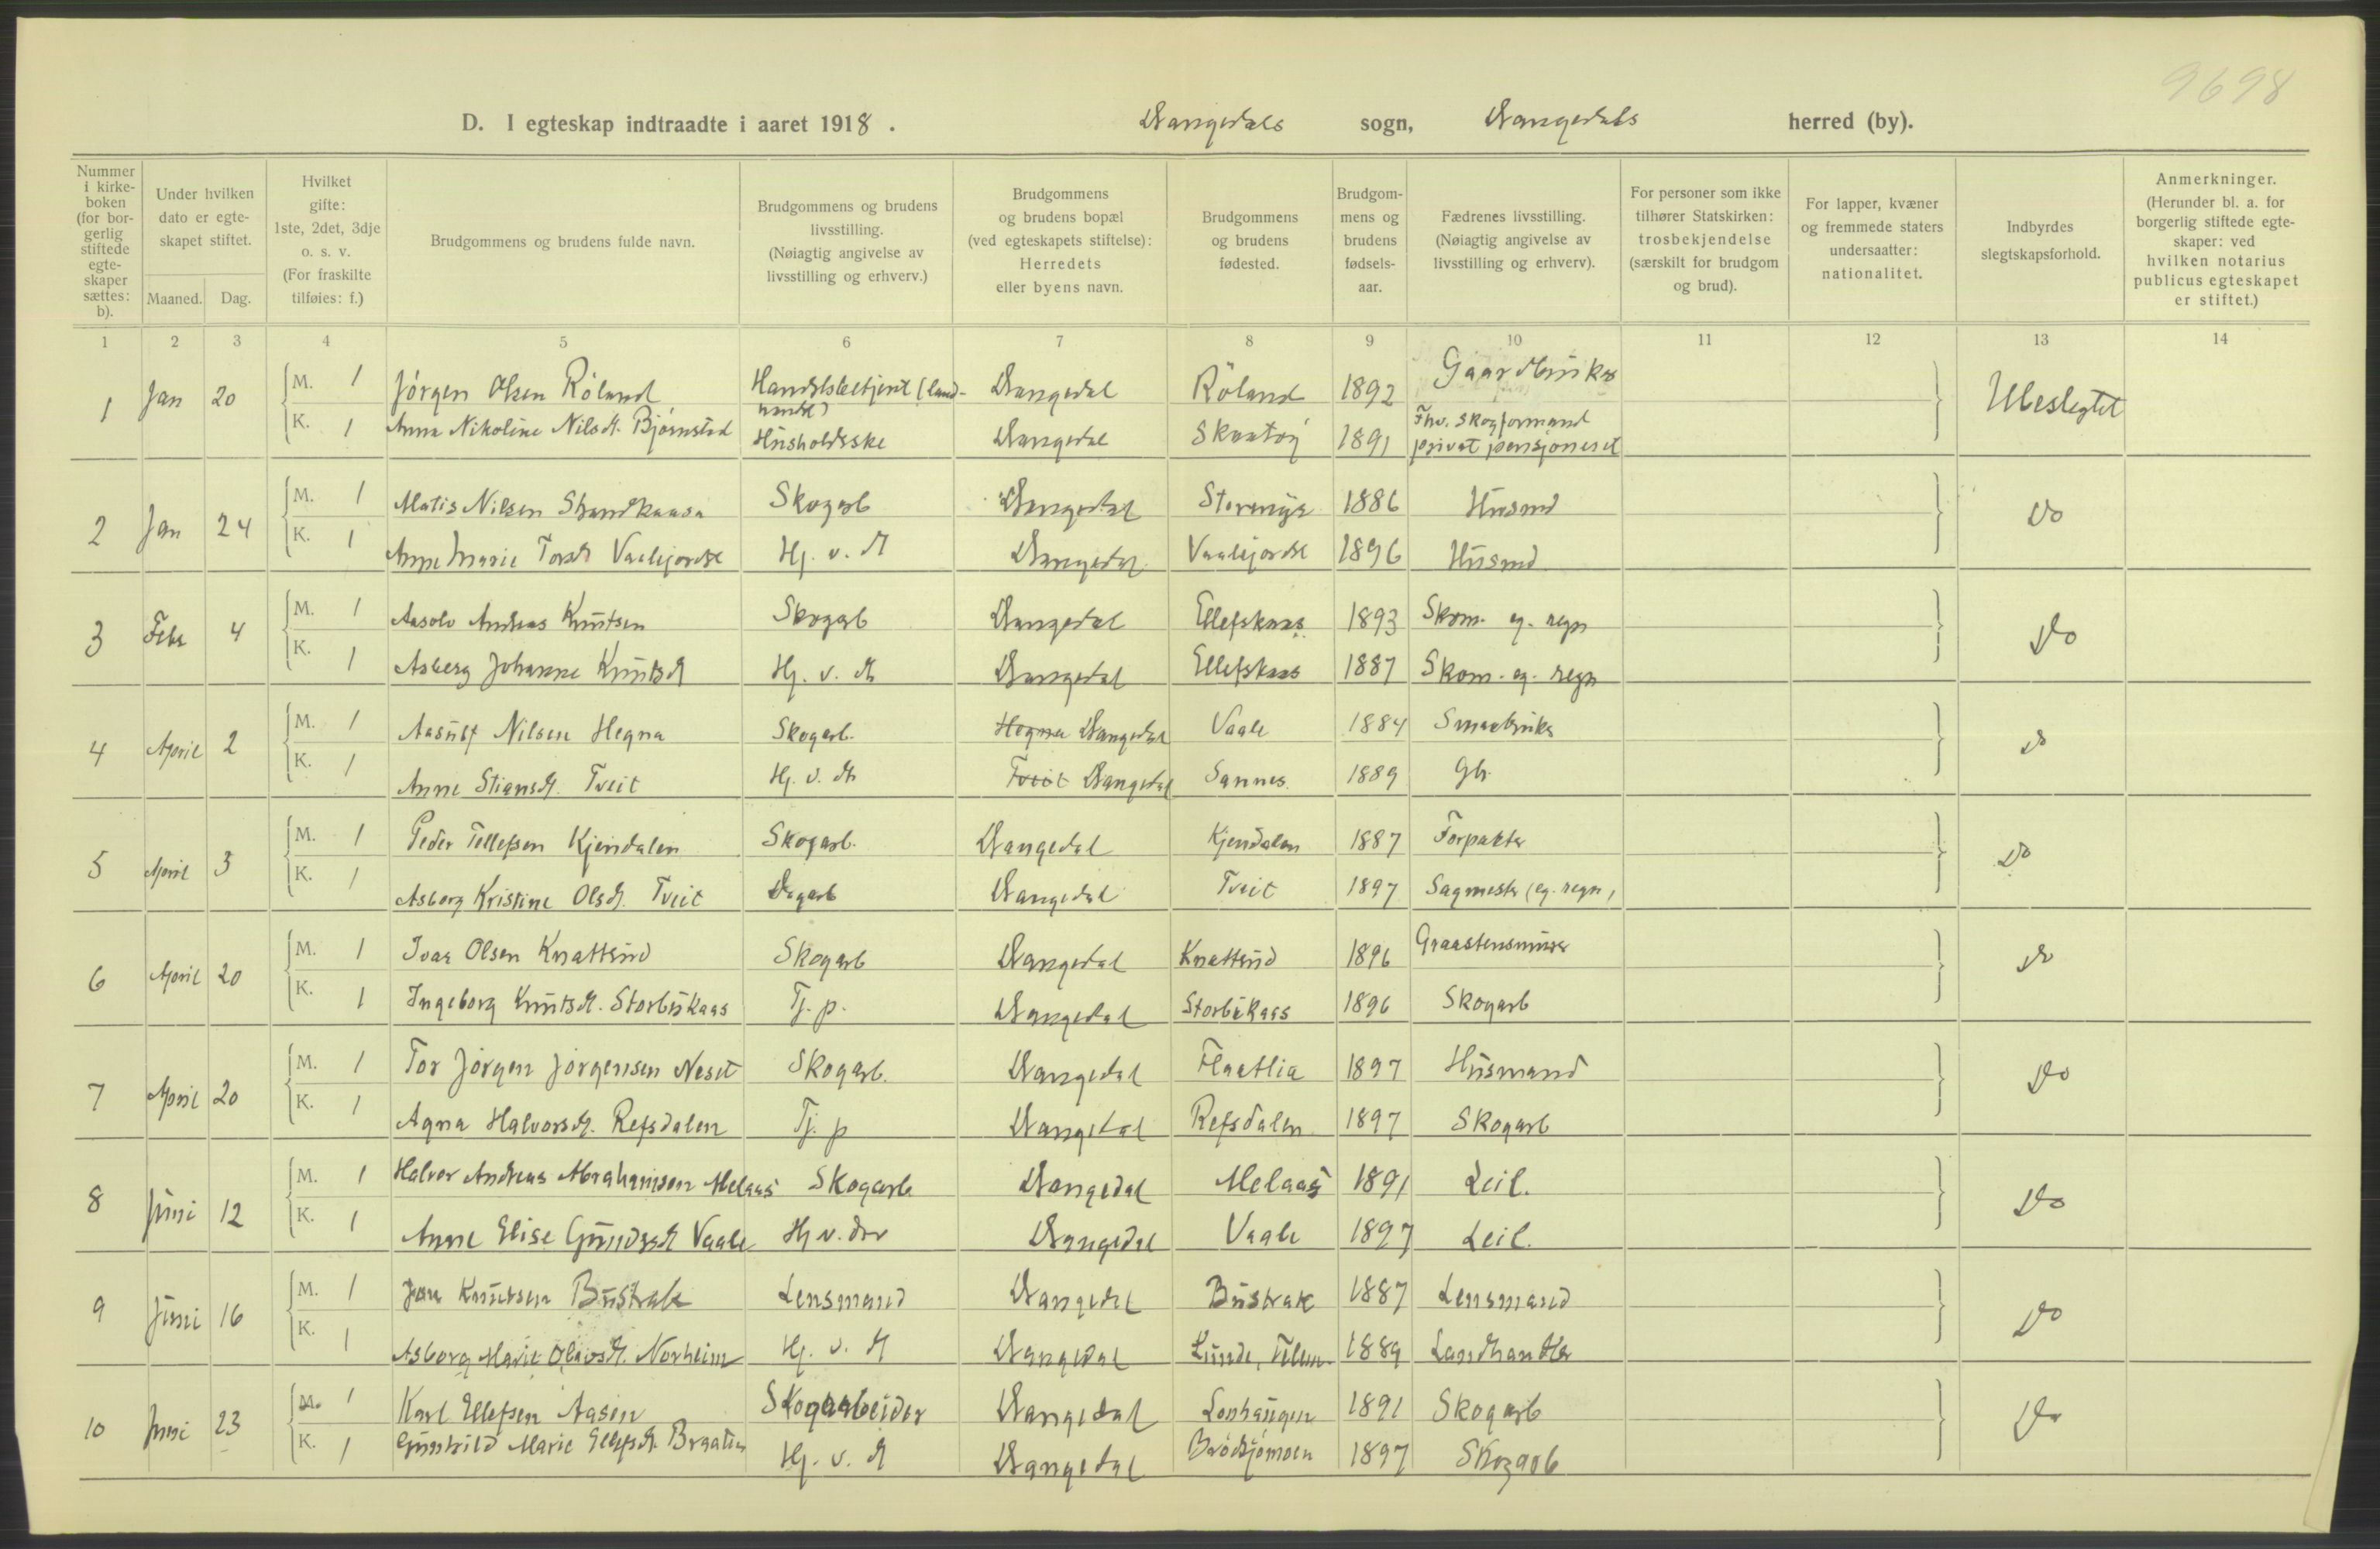 9698
D. I egteskap indtraadte i aaret 1918. Drangedals sogn, Drangedals herred (by).
Nummer i kirkeboken (for borgerlig stiftede egteskaper sættes: b).
Under hvilken dato er egteskapet stiftet.
Maaned. Dag.
Hvilket gifte: 1ste, 2det, 3dje o. s. v. (For fraskilte tilføies: f.)
Brudgommens og brudens fulde navn.
Brudgommens og brudens livsstilling. (Nøiagtig angivelse av livsstilling og erhverv.)
Brudgommens og brudens bopæl (ved egteskapets stiftelse): Herredets eller byens navn.
Brudgommens og brudens fødested.
Brudgommens og brudens fødselsaar.
Fædrenes livsstilling. (Nøiagtig angivelse av livsstilling og erhverv).
For personer som ikke tilhører Statskirken: trosbekjendelse (særskilt for brudgom og brud).
For lapper, kvæner og fremmede staters undersaatter: nationalitet.
Indbyrdes slegtskapsforhold.
Anmerkninger. (Herunder bl. a. for borgerlig stiftede egteskaper: ved hvilken notarius publicus egteskapet er stiftet.)
1 2 3 4 5 6 7 8 9 10 11 12 13 14
1 Jan 20 M. 1 Jörgen Olsen Röland Handelsbetjent (landhandel) Drangedal Röland 1892 Gaardbruker Ubeslegtet
K. 1 Anne Nikoline Nilsdt. Bjørnstad Husholderske Drangedal Skaatöy 1891 Fhv. skogformand privat pensjoneret
2 Jan 24 M. 1 Matis Nilsen Strandkaasa Skogarb Drangedal Storemyr 1886 Husmd Do
K. 1 Anne Marie Torsdt Vaalejordet Hj. v. dt Drangedal Vaalejordet 1896 Husmd
3 Febr 4 M. 1 Aasolv Andreas Knutsen Skogarb Drangedal Ellefskaas 1893 Skom. eg. regn Do
K. 1 Asberg Johanne Knutsdt Hj. v. dt Drangedal Ellefskaas 1887 Skom. eg. regn
4 April 2 M. 1 Aasulf Nilsen Hegna Skogarb. Hegna Drangedal Vaale 1884 Smaabruker Do
K. 1 Anne Stiansdt. Tveit Hj. v. dt Tveit Drangedal Sannes 1889 Gb.
5 April 3 M. 1 Peder Tellefsen Kjendalen Skogarb. Drangedal Kjendalen 1887 Forpakter Do
K. 1 Asborg Kristine Olsdt. Tveit Dagarb Drangedal Tveit 1897 Sagmester (eg. regn)
6 April 20 M. 1 Ivar Olsen Knatterud Skogarb Drangedal Knatterud 1896 Graastensmurer Do
K. 1 Ingeborg Knutsdt. Storbukaas Tj. p. Drangedal Storbukaas 1896 Skogarb
7 April 20 M. 1 Tor Jörgen Jörgensen Neset Skogarb. Drangedal Flaatlia 1897 Husmand Do
K. 1 Agna Halvorsdt. Refsdalen Tj. p Drangedal Refsdalen 1897 Skogarb
8 Juni 12 M. 1 Halvor Andreas Abrahamsen Melaas Skogarb Drangedal Melaas 1891 Leil. Do
K. 1 Anne Elise Gundersdt Vaale Hj v. dtr Drangedal Vaale 1897 Leil.
9 Juni 16 M. 1 Jon Knutsen Bustrak Lensmand Drangedal Bustrak 1887 Lensmand Do
K. 1 Asborg Marie Olavsdt. Norheim Hj. v. dt Drangedal Lunde, Telem. 1889 Landhandler
10 Juni 23 M. 1 Karl Ellefsen Aasen Skogarbeider Drangedal Lonhaugen 1891 Skogarb Do
K. 1 Gunhild Marie Ellefsdt. Braaten Hj. v. dt Drangedal Brödsjömoen 1897 Skogarb